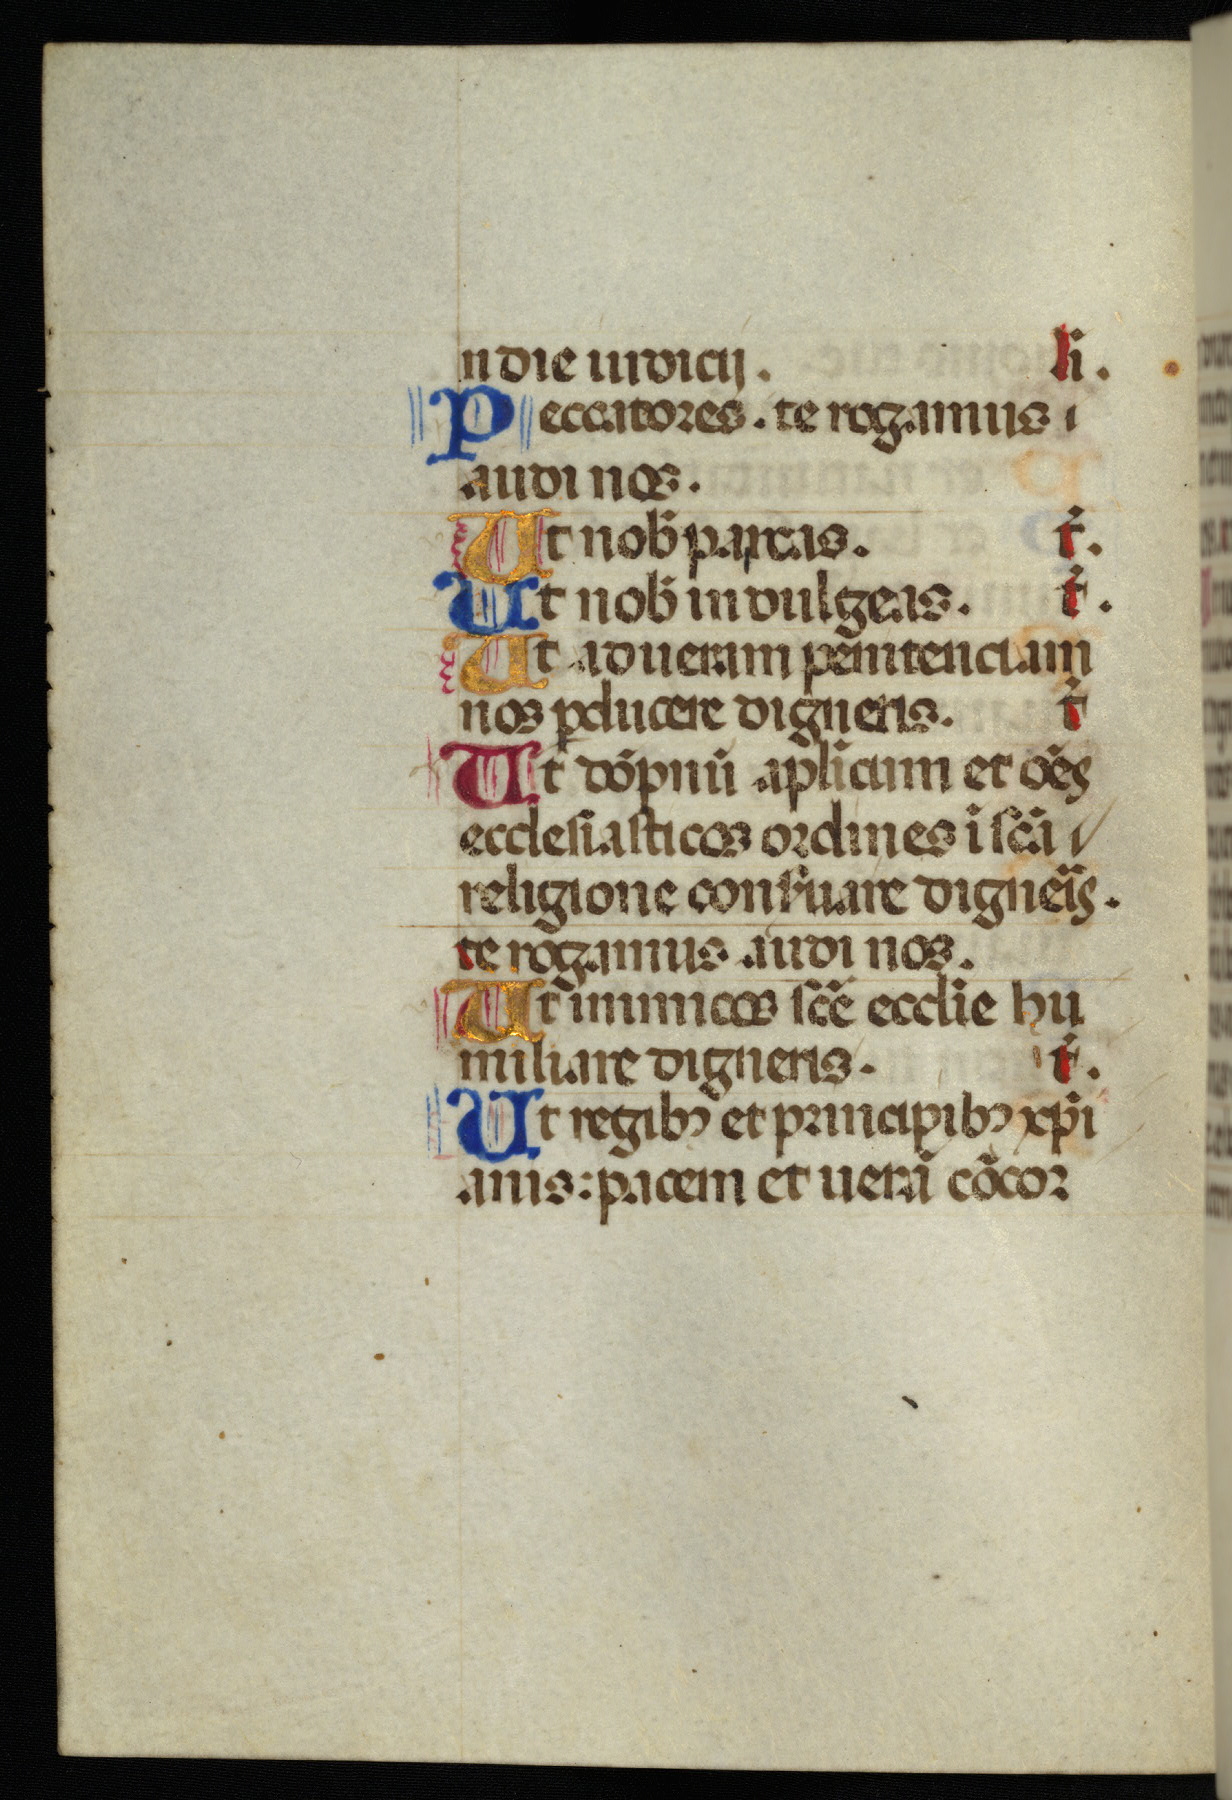 n die iudicij. li.
Peccatores. te rogamus
audi nos.
Ut nob̄ parcas. t̄.
Ut nob̄ indulgeas. t̄.
Ut ad ueram penitenciam
nos ꝑducere digneris. t̄
Ut dōpnū ap̄licum et oēs
ecclesiasticos ordines ī sc̄ā
religione conſ̄uare digneīs.
te rogamus audi nos.
Ut inimicos sc̄ē ecclīe hu
miliare digneris. t̄.
Ut regibꝫ et principibꝫ xp̄i
anis: pacem et uerā cōcor